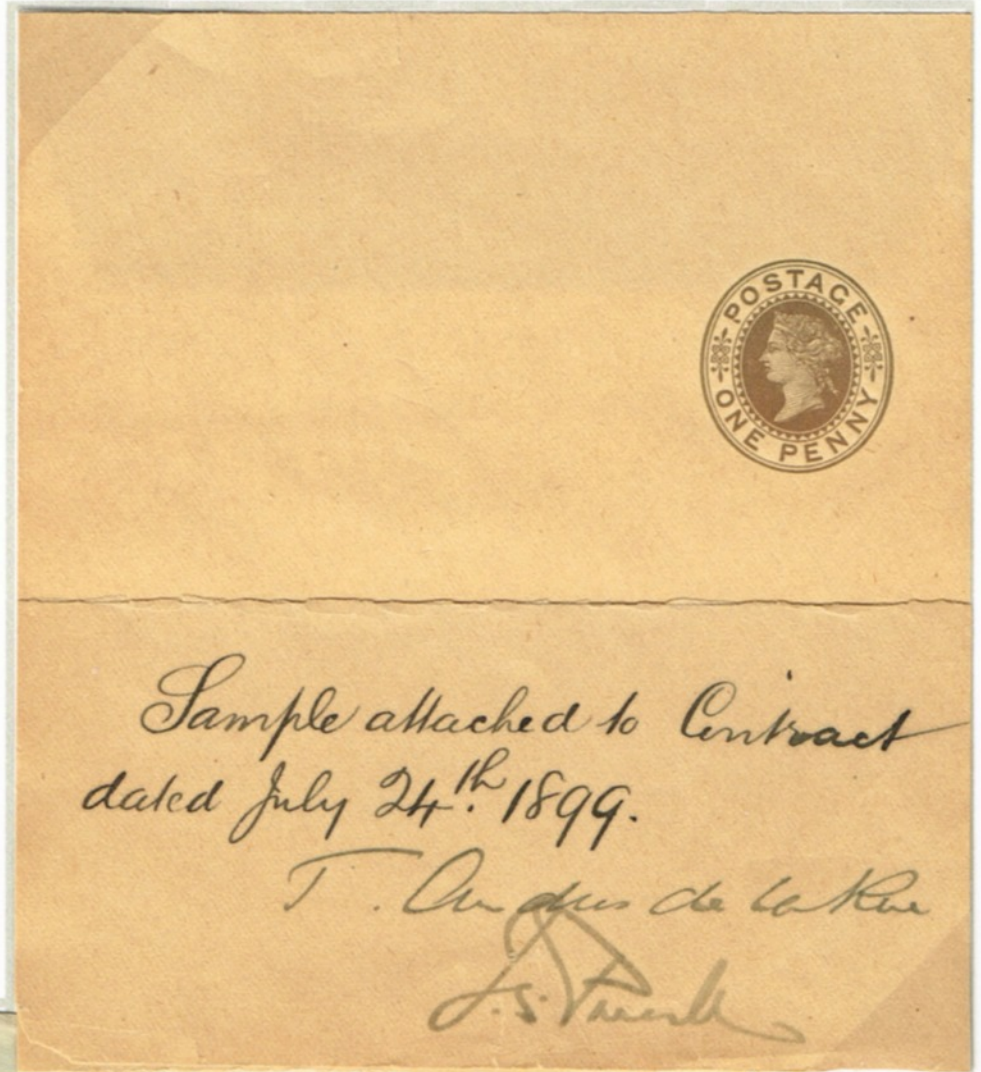 POSTAGE
ONE PENNY
Sample attached to Contract
dated July 24th. 1899.
T. Andros de la Rue
J. S.